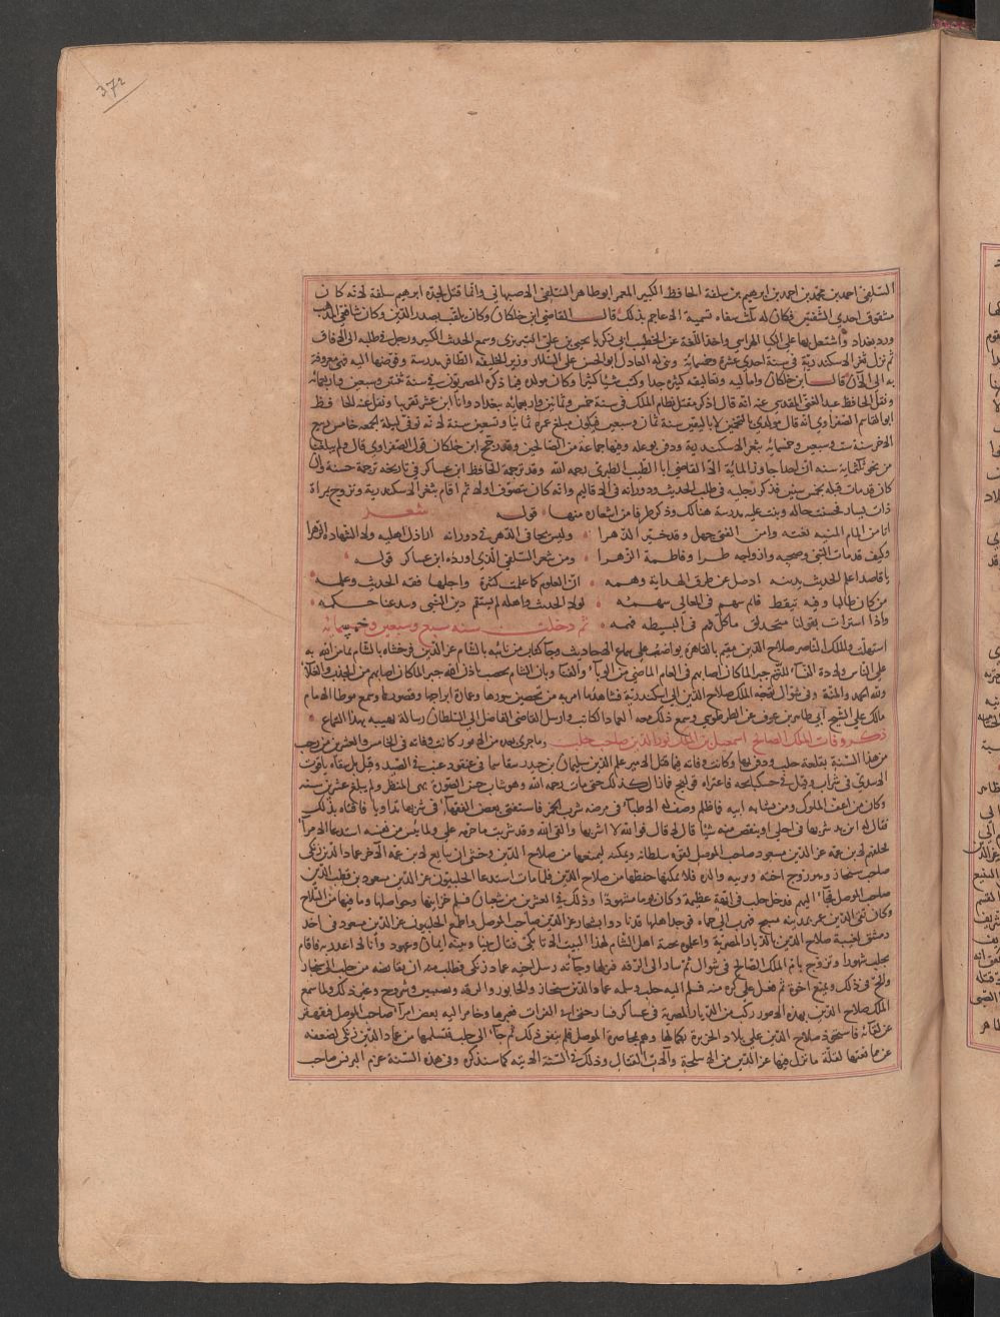 372
السلفي احمد بن محمد بن احمد بن ابرهيم بن سلفة الحافظ الكبير المعمر ابو طاهر السلفي الاصبهاني وانما قيل لجده ابرهيم سلفة لانه كان
مشقوق احدى الشفتين فكان له ثلث شفاه تسميه الاعاجم بذلك قال القاضي ابن خلكان وكان يلقب بصدر الدين وكان شافعي المذهب
ورد بغداد واشتغل بها على الكيا الهراسي واخذ اللغة عن الخطيب ابي زكريا يحيى بن علي التبريزي وسمع الحديث الكثير ورحل في طلبه الى الافاق
ثم نزل ثغر الاسكندرية في سنة احدى عشرة وخمسمائة وبنى له العادل ابو الحسن علي بن السلار وزير الخليفة الظافر مدرسة وفوضها اليه فهي معروفة
به الى الآن قال ابن خلكان واماليه وتعاليقه كثيرة جدا وكتب شيئا كثيرا وكان مولده فيما ذكره المصريون في سنة ثنتين وسبعين واربعمائة
ونقل الحافظ عبد الغني المقدسي عنه انه قال اذكر مقتل نظام الملك في سنة خمس وثمانين واربعمائة ببغداد وانا ابن عشر تقريبا ونقل عنه الحافظ
ابو القاسم الصفراوي انه قال مولدي بالتخمين لا باليقين سنة ثمان وسبعين فيكون مبلغ عمره ثمانيا وتسعين سنة لانه توفي ليلة الجمعة خامس ربيع
الاخر سنة ست وسبعين وخمسمائة بثغر الاسكندرية ودفن بوعلة وفيها جماعة من الصالحين وقد رجح ابن خلكان قول الصفراوي قال ولم يبلغنا
من نحو ثلثمائة سنة ان احدا جاوز المائة الا القاضي ابا الطيب الطبري رحمه الله وقد ترجمه الحافظ ابن عساكر في تاريخه ترجمة حسنة وان
كان قد مات قبله بخمس سنين فذكر رحلته في طلب الحديث ودورانه في الاقاليم وانه كان يتصوف اولا ثم اقام بثغر الاسكندرية وتزوج بمراة
ذات يسار فحسنت حاله وبنت عليه مدرسة هنالك وذكر طرفا من اشعاره منها قوله شعر
اتامن المام المنية بغتة وامن الفتى جهل وقد خبر الدهرا وليس يحابي الدهر في دورانه اراذل اهليه ولا السادة الزهرا
وكيف قد مات النبي وصحبه وازواجه طرا وفاطمة الزهرا ومن شعر السلفي الذي اورده ابن عساكر قوله
يا قاصدا علم الحديث بدينه اذ ضل عن طرق الهداية وهمه ان العلوم كما علمت كثيرة واجلها فقه الحديث وعلمه
من كان طالبا وفيه تيقظ فاتم سهم في المعالي سهمه لولا الحديث واهله لم يستقم دين النبي وشذ عنا حكمه
واذا استراب بقولنا متحذلق ما كل فهم في البسيطة فهمه ثم دخلت سنه سبع وسبعين وخمسمائه
استهلت والملك الناصر صلاح الدين مقيم بالقاهرة يواظب على سماع الاحاديث وجا كتاب من نائبه بالشام عز الدين فرخشاه بالشام بما من الله به
على الناس من ولادة النسا للتوأم جبرا لما كان اصابهم في العام الماضي من الوبا والفنا وبان الشام مخصب باذن الله جبرا لما كان اصابهم من الجدب والغلا
ولله الحمد والمنة وفي شوال توجه الملك صلاح الدين الى اسكندرية فشاهد ما امر به من تحصين سورها وعمارة ابراجها وقصورها وسمع موطا الامام
مالك على الشيخ ابي طاهر بن عوف عن الطرطوسي وسمع ذلك معه العماد الكاتب وارسل القاضي الفاضل الى السلطان رسالة تهنيه بهذا السماع
ذكر وفات الملك الصالح اسمعيل بن الملك نور الدين صاحب حلب وما جرى بعده من الامور كانت وفاته في الخامس والعشرين من رجب
من هذا السنة بقلعة حلب ودفن بها وكانت وفاته فيما قيل الامير علم الدين سليمان بن حيدر سقاه سما في عنقود عنب في الصيد وقيل بل سقاه ياقوت
الاسدي في شراب وقيل في خشكنانجه فاعتراه قولنج فما زال كذلك حتى مات رحمه الله وهو شاب حسن الصورة بهي المنظر ولم يبلغ عشرين سنة
وكان من اعف الملوك ومن يشابه ابيه فما ظلم وصف له الاطبا في مرضه شرب الخمر فاستفتى بعض الفقها في شربها تداويا فافتاه بذلك
فقال له ايزيد شربها في اجلي او ينقص منه شيئا قال لا قال فوالله لا اشربها والقى الله وقد شربت ما حرمه علي ولما يئس من نفسه استدعا الامرا
لحلفهم لابن عمه عز الدين مسعود صاحب الموصل لقوة سلطانه وتمكنه ليمنعها من صلاح الدين وخشى ان يبايع لابن عمه الاخر عماد الدين زنكي
صاحب سنجار وهو زوج اخته وتربية والده فلا يمكنه حفظها من صلاح الدين فلما مات استدعا الحلبيون عز الدين مسعود بن قطب الدين
صاحب الموصل فجا اليهم فدخل حلب في ابهة عظيمة وكان يوما مشهودا وذلك في العشرين من شعبان فتسلم خزاينها وحواصلها وما فيها من السلاح
وكان تقي الدين عمر بمدينة منبج فهرب الى حماه فوجد اهلها قد نادوا بشعار عز الدين صاحب الموصل واطمع الحلبيون عز الدين مسعود في اخذ
دمشق لغيبة صلاح الدين بالديار المصرية واعلموه محبة اهل الشام لهذا البيت الاتابكي فقال بيننا وبينه ايمان وعهود وانا لا اغدر به فاقام
بحلب شهورا وتزوج بام الملك الصالح في شوال ثم سار الى الرقة فنزلها وجاءته رسل اخيه عماد زنكي فطلب منه ان يقايضه من حلب الى سنجار
والح في ذلك وتمنع اخوه ثم فعل على كره منه فسلم اليه حلب وسلمه عماد الدين سنجار والخابور والرقة ونصيبين وسروج وغير ذلك ولما سمع
الملك صلاح الدين بهذه الامور ركب من الديار المصرية في عساكره فسار حتى اتى الفرات فعبرها وخامر اليه بعض امرا صاحب الموصل فتقهقر
عن لقائه فاستحوذ صلاح الدين على بلاد الجزيرة بكمالها وهم بمحاصرة الموصل فلم يتفق ذلك ثم جا الى حلب فتسلمها من عماد الدين زنكي لضعفه
عن ممانعتها لقلة ما ترك فيها عز الدين من الاسلحة والآت القتال وذلك في السنة الاتية كما سنذكره وفي هذه السنة عزم البرنس صاحب